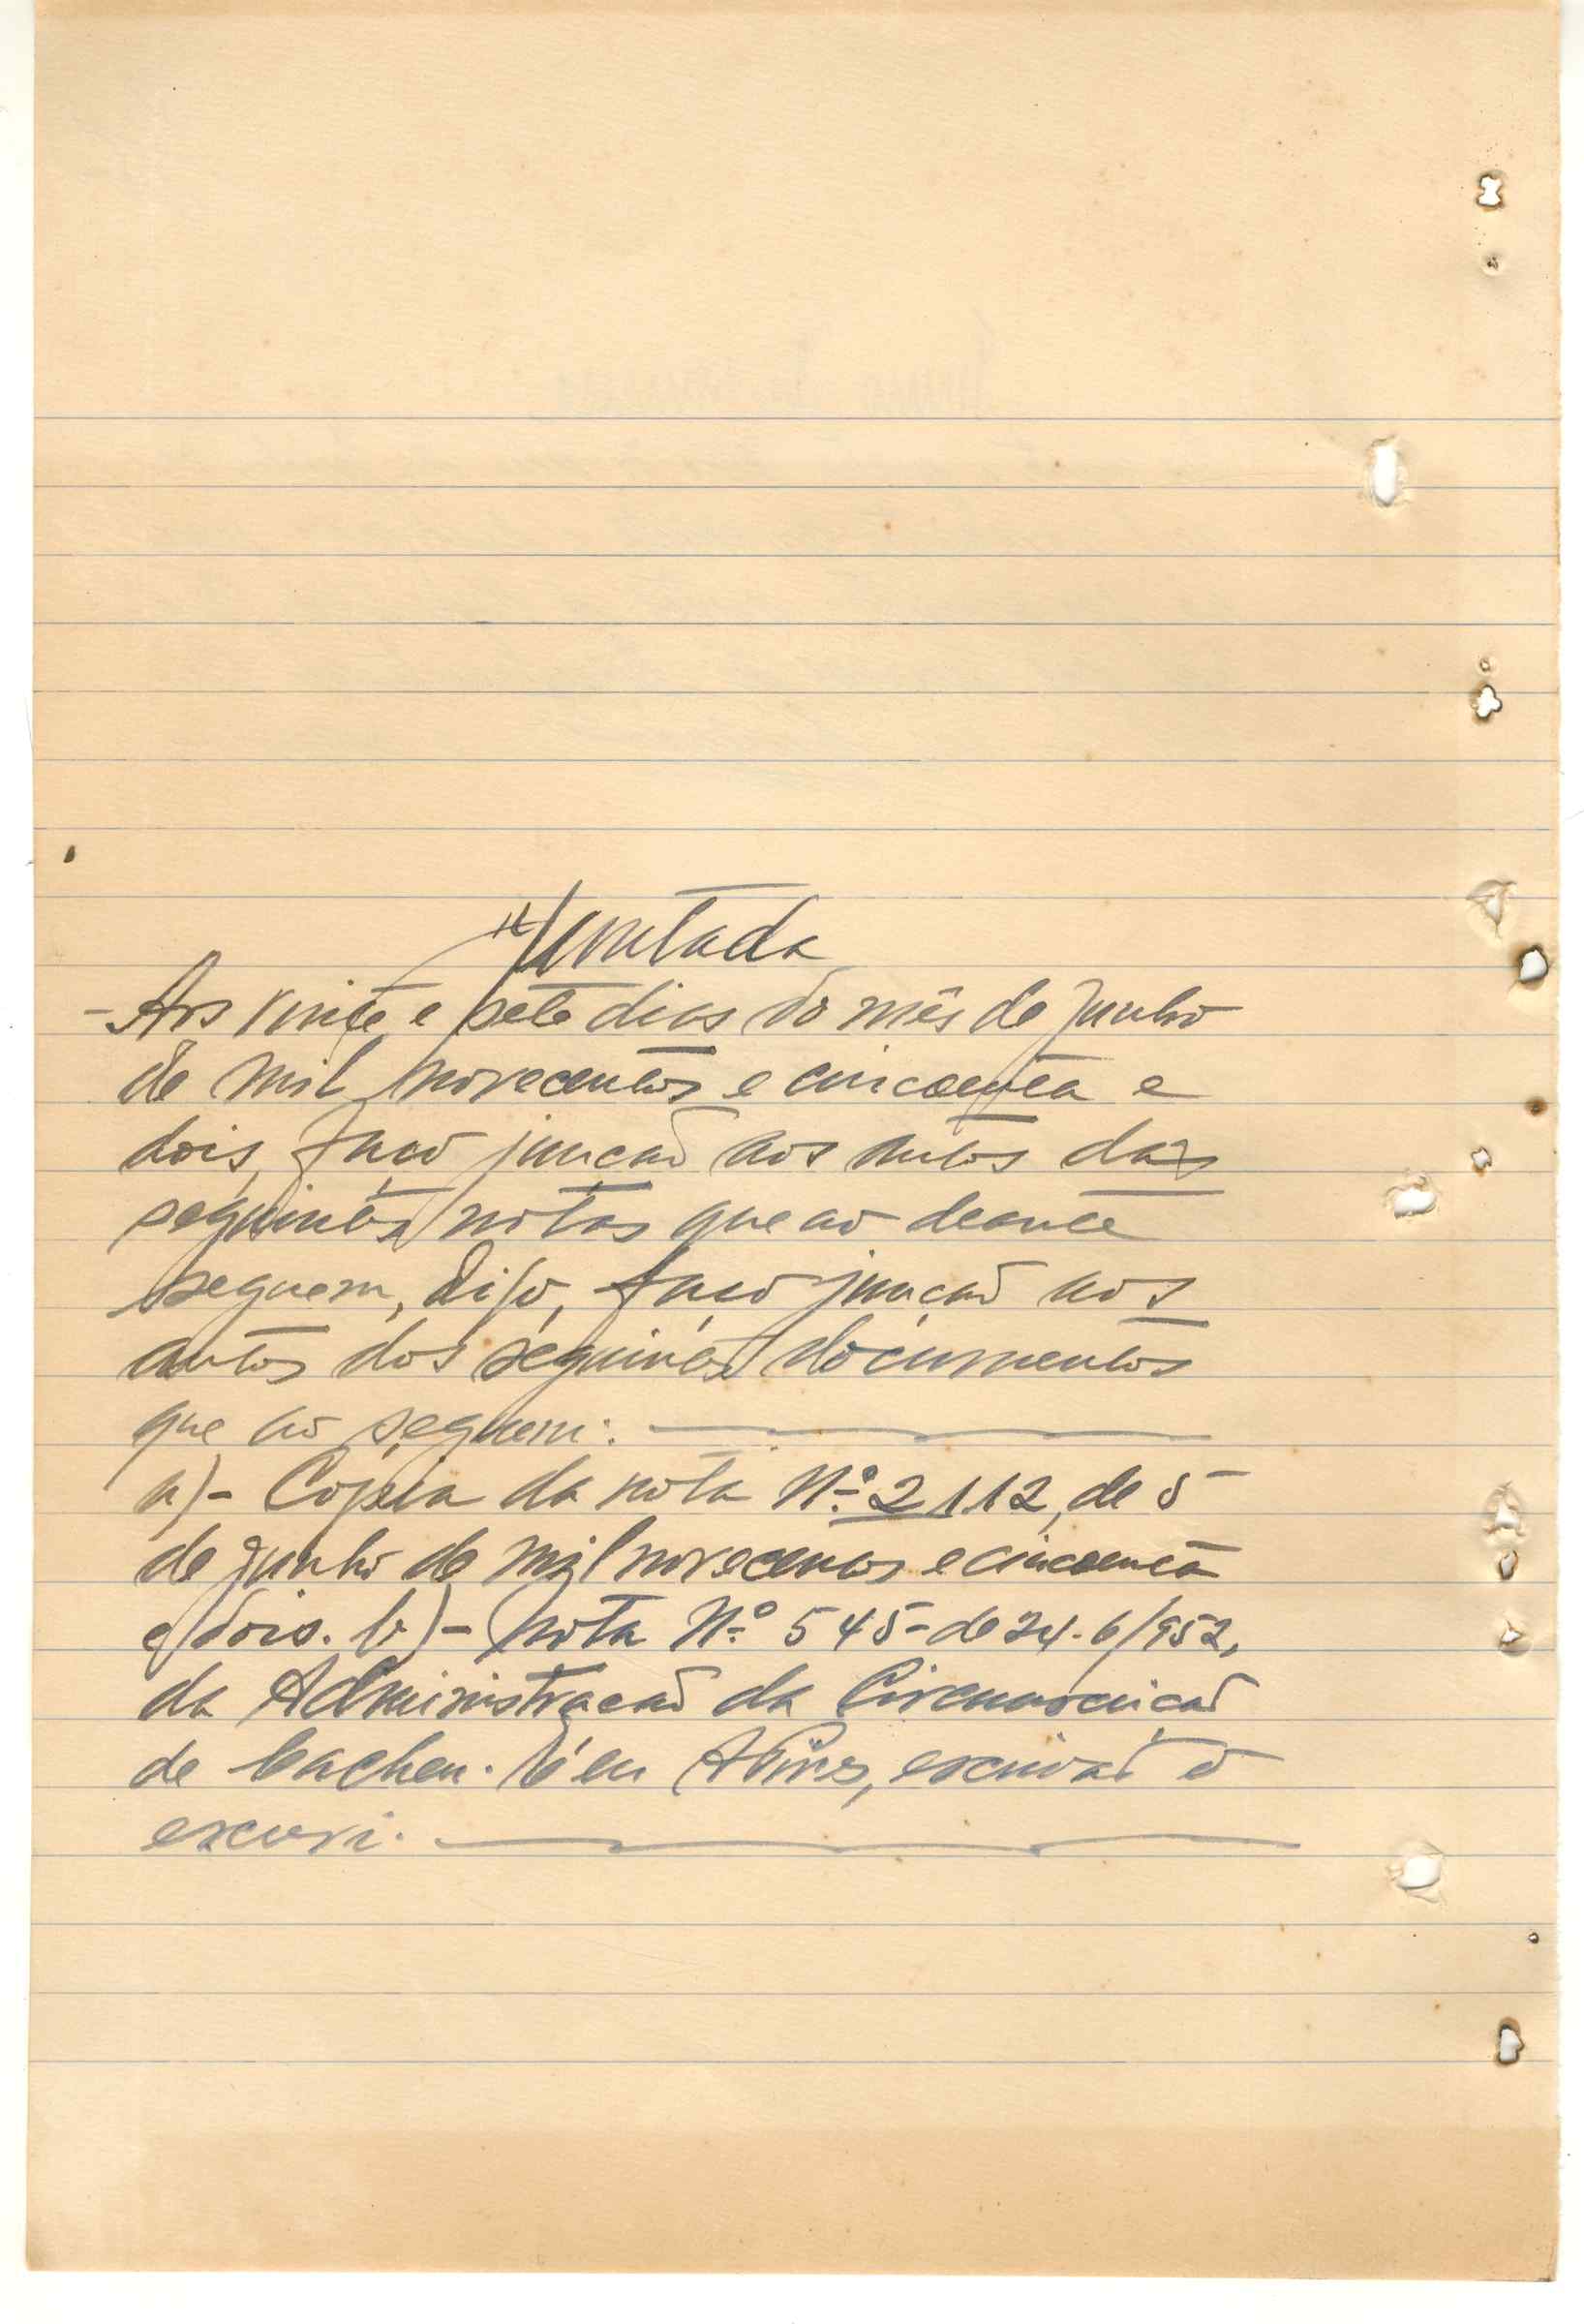 Juntada
- Aos vinte e sete dias do mês de Junho
de mil novecentos e cincoenta e
dois, faço junção aos autos das
seguintes notas que ao deante
seguem, digo, faço junção aos
autos dos seguintes documentos
que ao seguem:
a) - Cópia da nota Nº 2112, de 5
de Junho de mil novecentos e cincoenta
e dois. b) - Nota Nº 545 - de 24-6/952,
da Administração da Circunscrição
de Cacheu. E eu APires, escrivão o
escrevi.